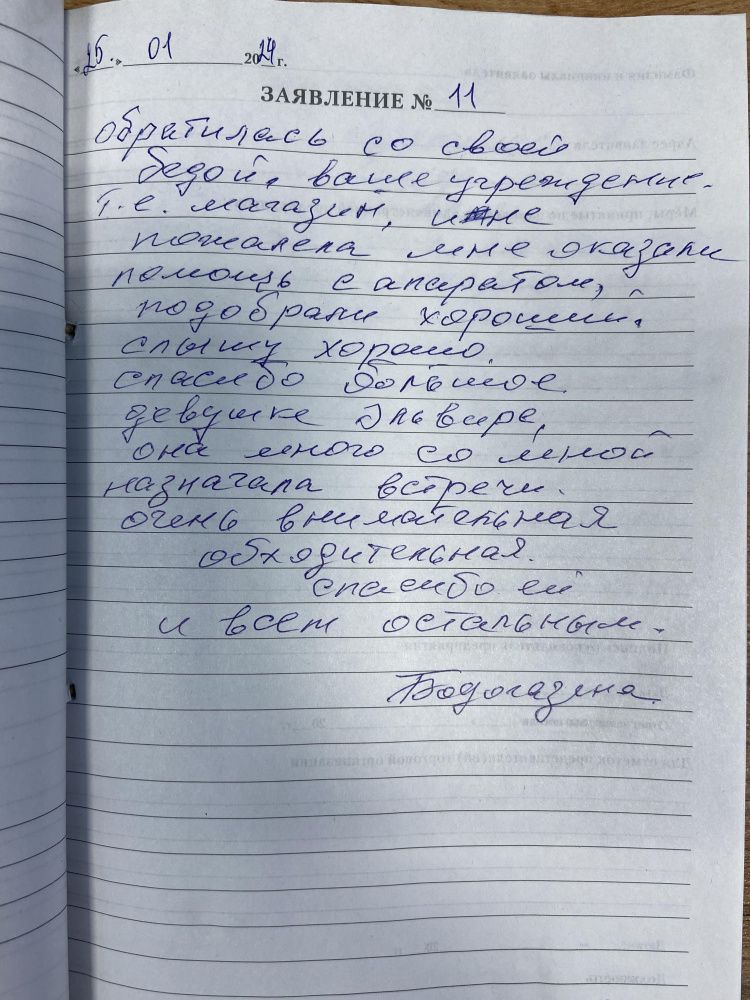 «25.» 01 2024 г.
ЗАЯВЛЕНИЕ № 11
обратилась со своей
бедой, ваше учреждение.
т.е. магазин, и не
пожалела мне оказали
помощь с апаратом,
подобрали хороший.
слышу хорошо.
спасибо большое
девушке Эльвире,
она много со мной
назначала встречи.
очень внимательная
обходительная.
спасибо ей
и всем остальным.